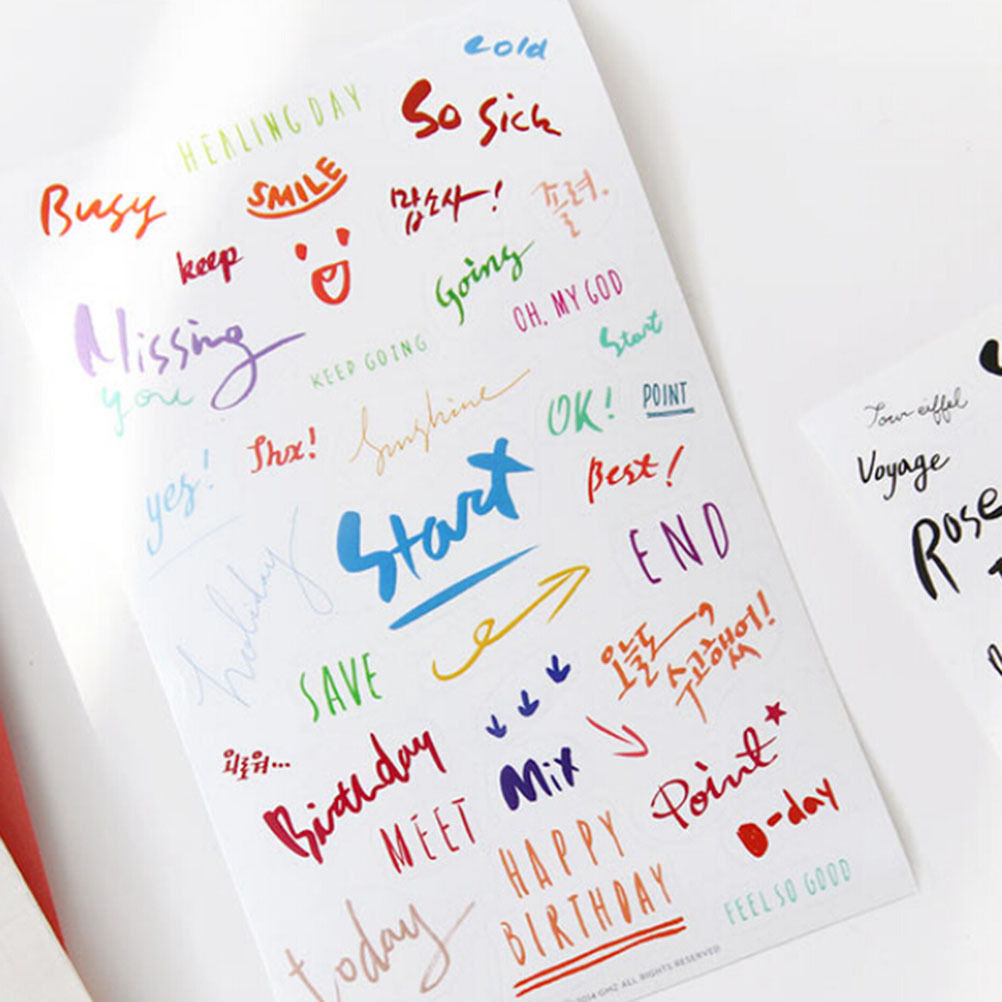 cold
So Sick
HEALING DAY
SMILE
Busy
맙소사!
졸려.
keep
Going
OH, MY GOD
Missing
you
Start
KEEP GOING
OK!
POINT
Sunshine
Thx!
yes!
Best!
Start
END
holiday
오늘도
수고했어!
SAVE
외로워...
Birthday
Mix
Point
MEET
D-day
HAPPY
BIRTHDAY
FEEL SO GOOD
today
2014 GMZ ALL RIGHTS RESERVED
Tour eiffel
Voyage
Rose